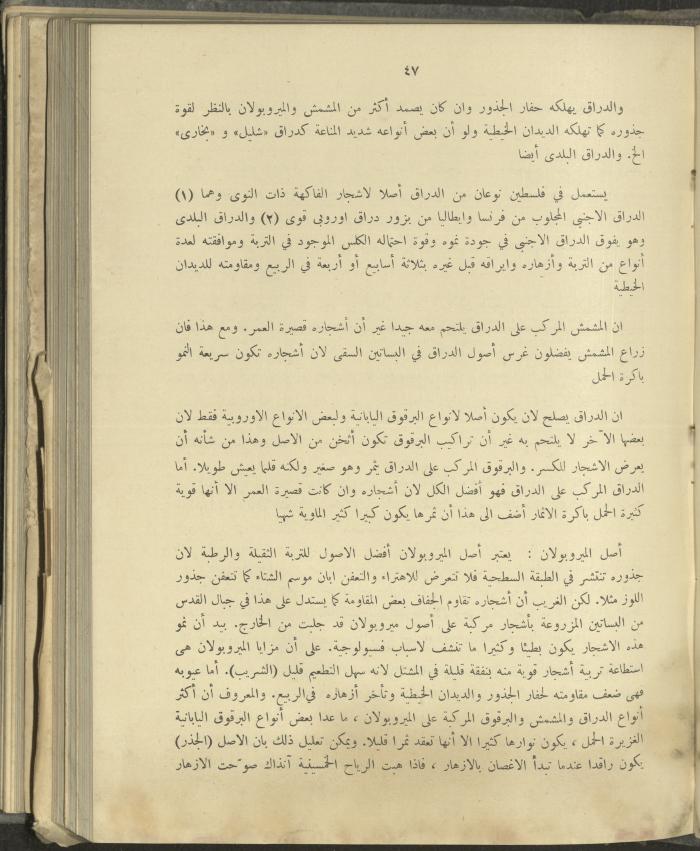 ٤٧
والدراق يهلكه حفار الجذور وان كان يصمد أكثر من المشمش والميروبولان بالنظر لقوة
جذوره كما تهلكه الديدان الخيطية ولو أن بعض أنواعه شديد المناعة كدراق «شليل» و «بخارى»
الخ. والدراق البلدى أيضا
يستعمل في فلسطين نوعان من الدراق أصلا لاشجار الفاكهة ذات النوى وهما (١)
الدراق الاجنبى المجلوب من فرنسا وايطاليا من بزور دراق اوروبى قوى (٢) والدراق البلدى
وهو يفوق الدراق الاجنبى في جودة نموه وقوة احتماله الكلس الموجود في التربة وموافقته لعدة
أنواع من التربة وأزهاره وايراقه قبل غيره بثلاثة أسابيع أو أربعة في الربيع ومقاومته للديدان
الخيطية
ان المشمش المركب على الدراق يلتحم معه جيدا غير أن أشجاره قصيرة العمر. ومع هذا فان
زراع المشمش يفضلون غرس أصول الدراق في البساتين السقى لان أشجاره تكون سريعة النمو
باكرة الحمل
ان الدراق يصلح لان يكون أصلا لانواع البرقوق اليابانية ولبعض الانواع الاوروبية فقط لان
بعضها الآخر لا يلتحم به غير أن تراكيب البرقوق تكون أثخن من الاصل وهذا من شأنه أن
يعرض الاشجار للكسر. والبرقوق المركب على الدراق يثمر وهو صغير ولكنه قلما يعيش طويلا. أما
الدراق المركب على الدراق فهو أفضل الكل لان أشجاره وان كانت قصيرة العمر الا أنها قوية
كثيرة الحمل باكرة الاثمار أضف الى هذا أن ثمرها يكون كبيرا كثير الماوية شهيا
أصل الميروبولان : يعتبر أصل الميروبولان أفضل الاصول للتربة الثقيلة والرطبة لان
جذوره تنتشر في الطبقة السطحية فلا تتعرض للاهتراء والتعفن ابان موسم الشتاء كما تتعفن جذور
اللوز مثلا. لكن الغريب أن أشجاره تقاوم الجفاف بعض المقاومة كما يستدل على هذا في جبال القدس
من البساتين المزروعة بأشجار مركبة على أصول ميروبولان قد جلبت من الخارج. بيد أن نمو
هذه الاشجار يكون بطيئا وكثيرا ما تنشف لاسباب فسيولوجية. على أن مزايا الميروبولان هى
استطاعة تربية أشجار قوية منه بنفقة قليلة في المشتل لانه سهل التطعيم قليل (الشريب). أما عيوبه
فهى ضعف مقاومته لحفار الجذور والديدان الخيطية وتأخر أزهاره في الربيع. والمعروف أن أكثر
أنواع الدراق والمشمش والبرقوق المركبة على الميروبولان ، ما عدا بعض أنواع البرقوق اليابانية
الغزيرة الحمل ، يكون نوارها كثيرا الا أنها تعقد ثمرا قليلا. ويمكن تعليل ذلك بان الاصل (الجذر)
يكون راقدا عندما تبدأ الاغصان بالازهار ، فاذا هبت الرياح الخمسينية آنذاك صوّحت الازهار